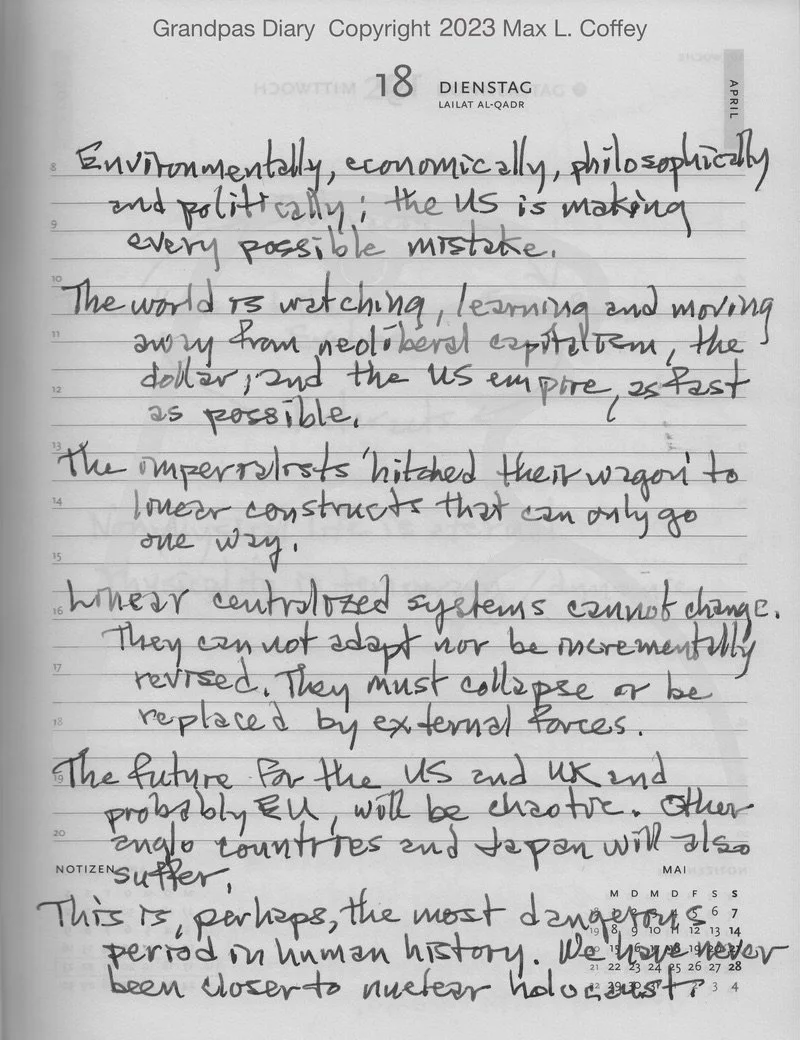 Grandpas Diary Copyright 2023 Max L. Coffey
18 DIENSTAG
LAILAT AL-QADR
APRIL
8 Environmentally, economically, philosophically
and politically; the US is making
9 every possible mistake.
10 The world is watching, learning and moving
11 away from neoliberal capitalism, the
12 dollar, and the US empire, as fast
as possible.
13 The imperialists 'hitched their wagon' to
14 linear constructs that can only go
one way.
15
16 Linear centralized systems cannot change.
They can not adapt nor be incrementally
17 revised. They must collapse or be
18 replaced by external forces.
19 The future for the US and UK and
probably EU, will be chaotic. Other
20 anglo countries and Japan will also
NOTIZEN suffer.
MAI
M D M D F S S
This is, perhaps, the most dangerous
period in human history. We have never
been closer to nuclear holocaust.
5 6 7
19 8 9 10 11 12 13 14
21 22 23 24 25 26 27 28
3 4